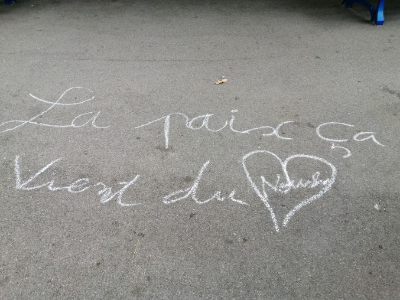 La paix ça
vient du